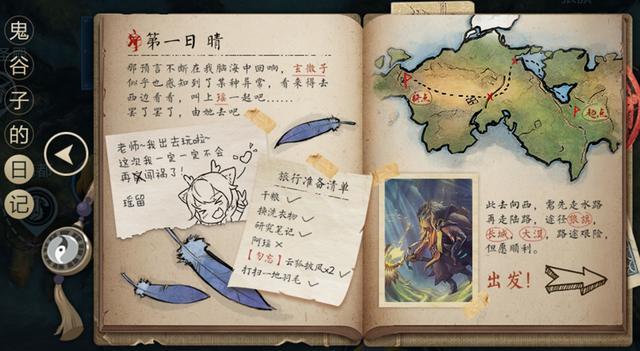 鬼谷子的日记
第一日 晴
那预言不断在我脑海中回响，玄微子
似乎也感知到了某种异常，看来得去
西边看看，叫上瑶一起吧……
罢了罢了，由她去吧
老师~我出去玩啦~
这次我一定一定不会
再闯祸了！
瑶留
旅行准备清单
干粮
换洗衣物
研究笔记
阿瑶×
【勿忘】云狐披风x2
打扫一地羽毛
终点
起点
此去向西，需先走水路
再走陆路，途径狼旗，
长城，大漠，路途艰险，
但愿顺利。
出发！